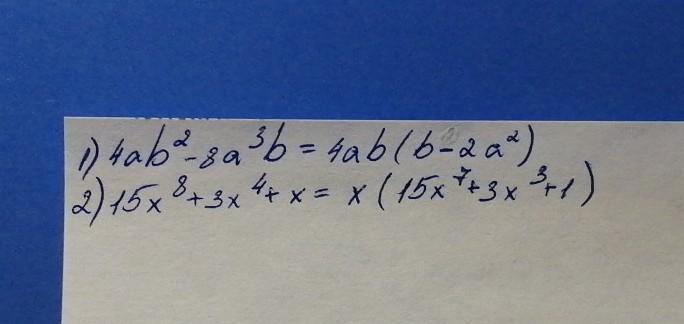 1) 4ab² - 8a³b = 4ab(b - 2a²)
2) 15x⁸ + 3x⁴ + x = x(15x⁷ + 3x³ + 1)